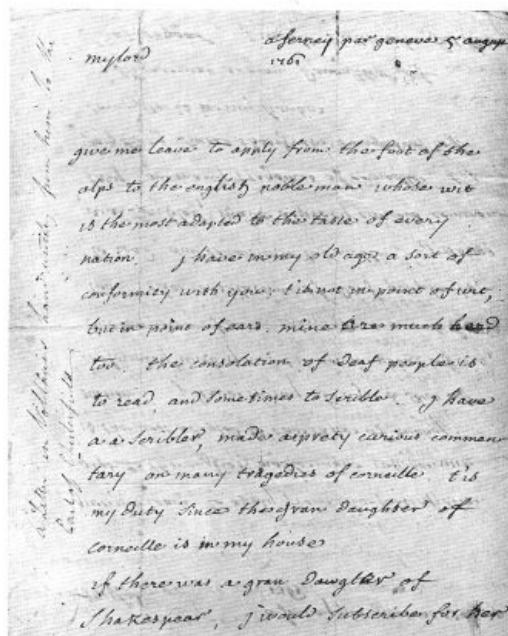 a ferney par geneve 5 august
mylord 1761
give me leave to apply from the foot of the
alps to the english noble man whose wit
is the most adapted to the taste of every
nation. j have in my old age a sort of
conformity with you; t'is not in point of wit,
but in point of ears. mine are much hard
too. the consolation of deaf people is
to read, and sometimes to scrible. j have
as a scribler, made a prety curious commen
tary on many tragedies of corneille t'is
my duty since the gran daughter of
corneille is in my house
if there was a gran dawghter of
Shakespear, j would subscribe for her
a letter in Voltaires hand writing from him to the
Earl of Chesterfield